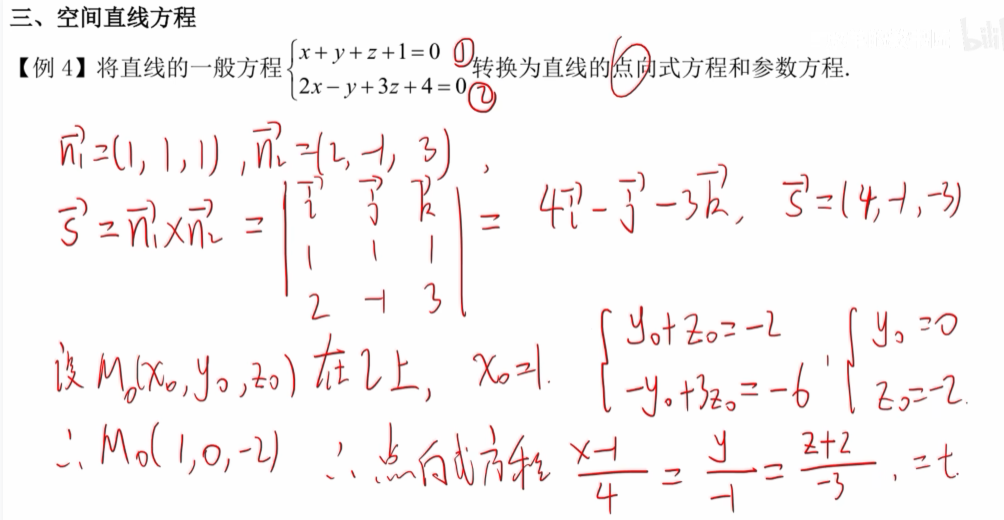 三、空间直线方程
bili
【例 4】将直线的一般方程 { x+y+z+1=0 ① 2x−y+3z+4=0 ② 转换为直线的点向式方程和参数方程.
n₁⃗=(1,1,1), n₂⃗=(2,-1,3),
s⃗=n₁⃗×n₂⃗ = | i⃗ j⃗ k⃗ | = 4i⃗-j⃗-3k⃗, s⃗=(4,-1,-3)
1 1 1
2 -1 3
设M₀(x₀,y₀,z₀)在l上, x₀=1. { y₀+z₀=-2 -y₀+3z₀=-6, { y₀=0 z₀=-2.
∴M₀(1,0,-2) ∴点向式方程 (x-1)/4 = y/-1 = (z+2)/-3, =t.